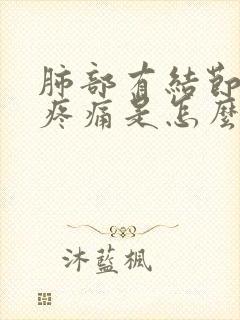 肺部有結節
疼痛是怎麼
沐藍楓